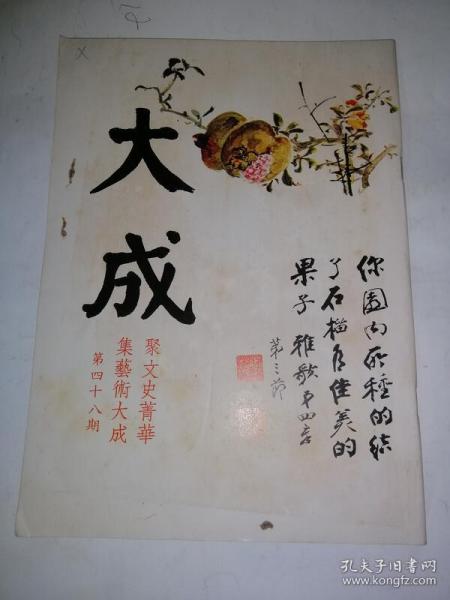 大成
聚文史菁華
集藝術大成
第四十八期
你園內所種的結
了石榴有佳美的
果子 雅歌第四章
第三節
孔夫子旧书网
www.kongfz.com